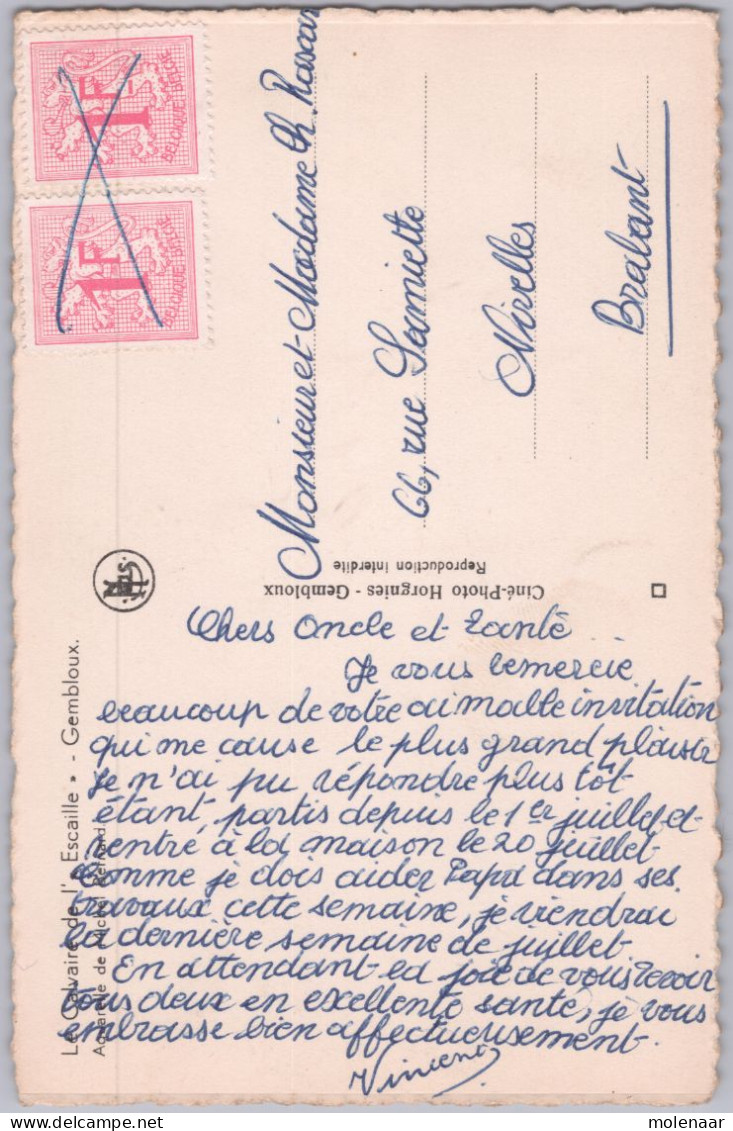 1F
BELGIQUE-BELGIË
1F
BELGIQUE-BELGIË
Monsieur et Madame Ch. Rascar
66, rue Samiette
Nivelles
Brabant
Ciné-Photo Horgnies - Gembloux
Reproduction interdite
Le Calvaire de l' Escaille » - Gembloux.
Aquarelle de Bernard.
Chers Oncle et Tante ...
Je vous remercie
beaucoup de votre aimable invitation
qui me cause le plus grand plaisir
Je n'ai pu répondre plus tôt
étant partis depuis le 1er juillet et
rentré à la maison le 20 juillet
Comme je dois aider Papa dans ses
travaux cette semaine, je viendrai
la dernière semaine de juillet
En attendant la joie de vous revoir
tous deux en excellente santé, je vous
embrasse bien affectueusement.
Vincent
molenaar